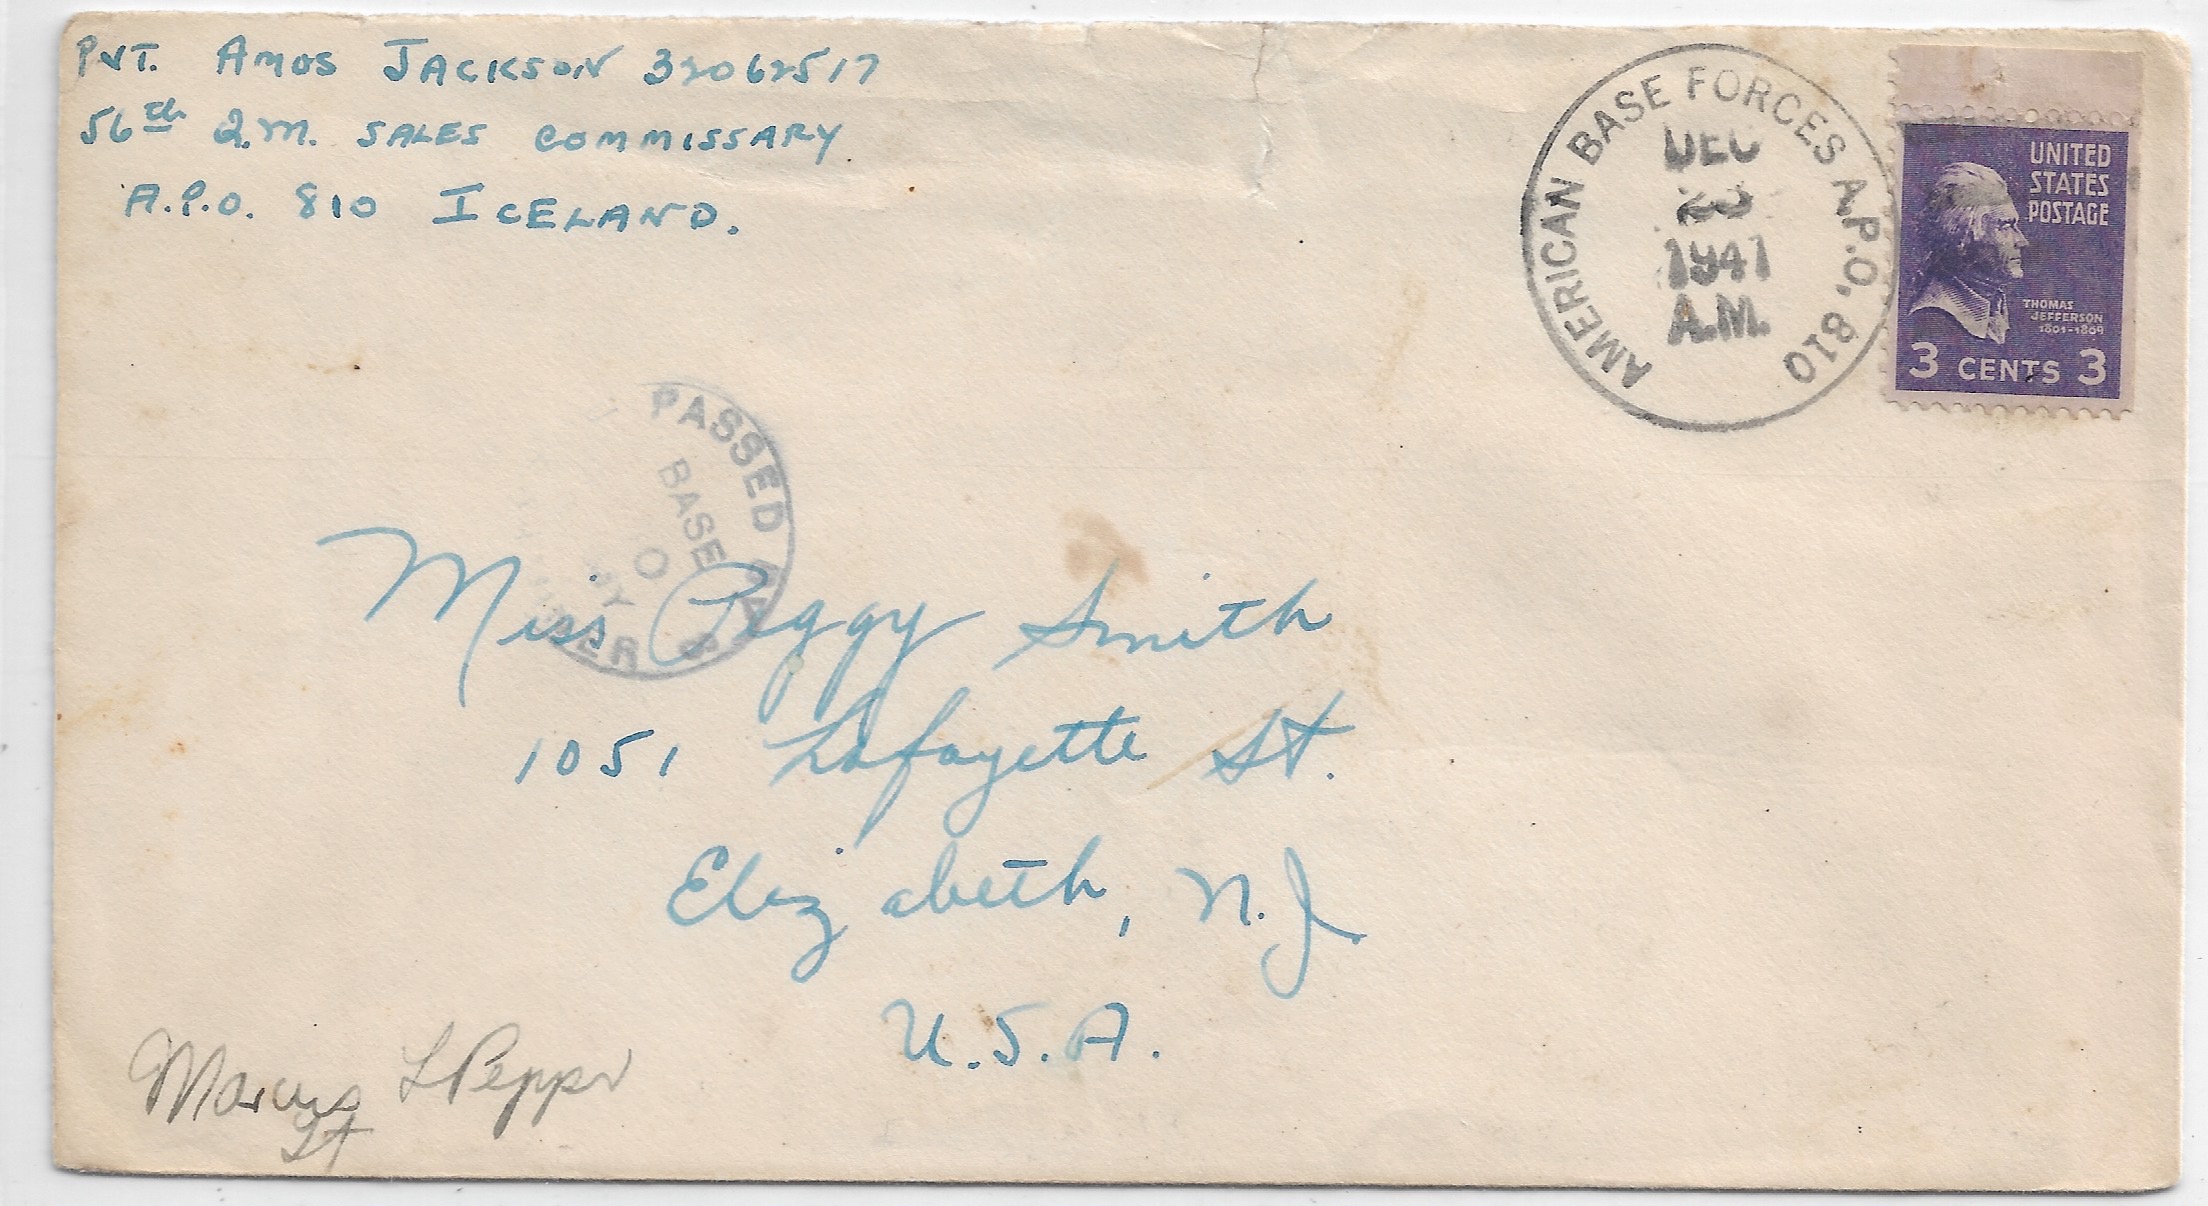 PVT. AMOS JACKSON 32062517
56th Q.M. SALES COMMISSARY
A.P.O. 810 ICELAND.
AMERICAN BASE FORCES A.P.O. 810
DEC
1941
A.M.
UNITED
STATES
POSTAGE
THOMAS
JEFFERSON
1801-1809
3 CENTS 3
PASSED
BASE
Miss Peggy Smith
1051 Lafayette St.
Elizabeth, N.J.
U.S.A.
Marcus L Pepper
Lt